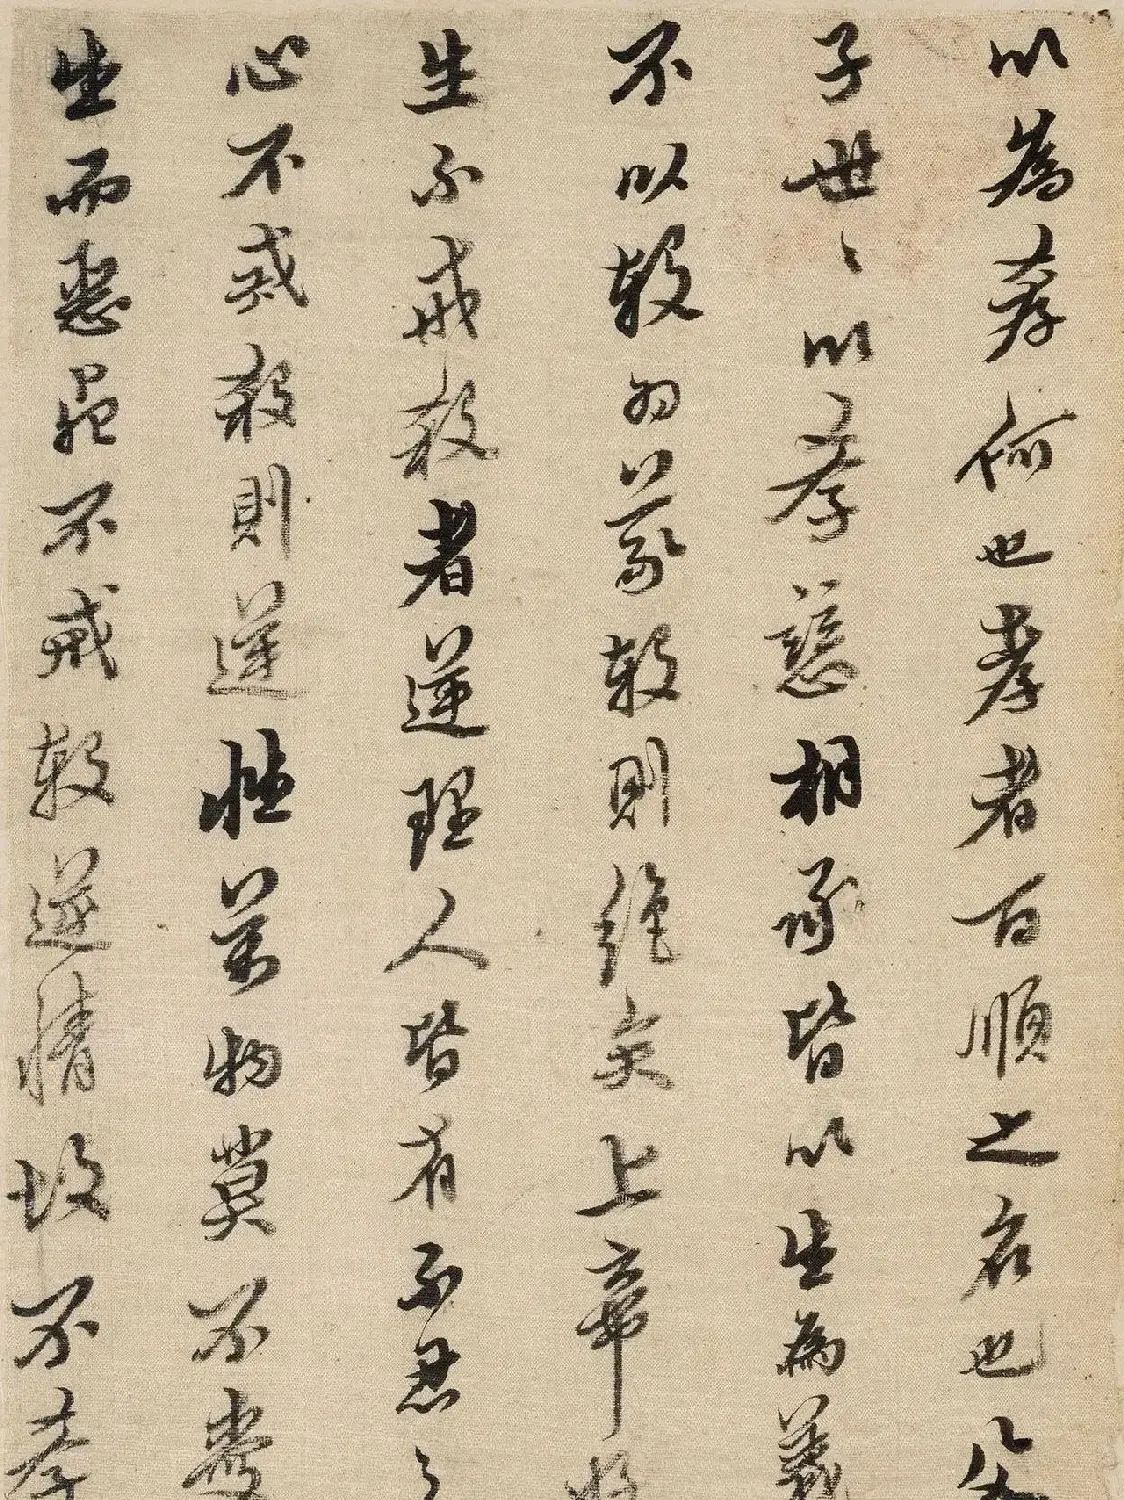 以為孝何也孝者百順之名也父
子世〻以孝慈相承皆以生為義
不以殺為義殺則絕矣上帝好
生不戒殺者逆理人皆有不忍之
心不戒殺則逆性萬物莫不愛
生而惡死不戒殺逆情故不孝